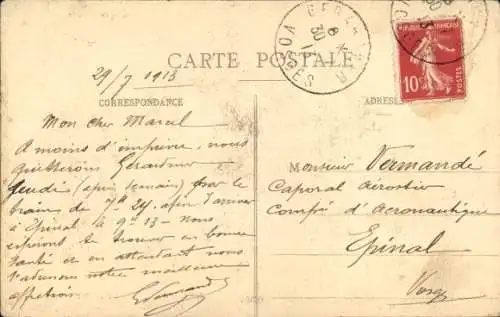 CARTE POSTALE
29/7 1913
CORRESPONDANCE
ADRES
VOSGES
30
10
POSTES
Mon cher Marcel
A moins d'imprévu, nous
quitterons Gérardmer
jeudi (après demain) par le
train de 7h 24, afin d'arriver
à Epinal à 9h 13 - Nous
espérons te trouver en bonne
santé et en attendant nous
t'adressons notre meilleure
affection.
Monsieur Vermandé
Caporal Aérostier
Comp. d'Aéronautique
Epinal
Vosges